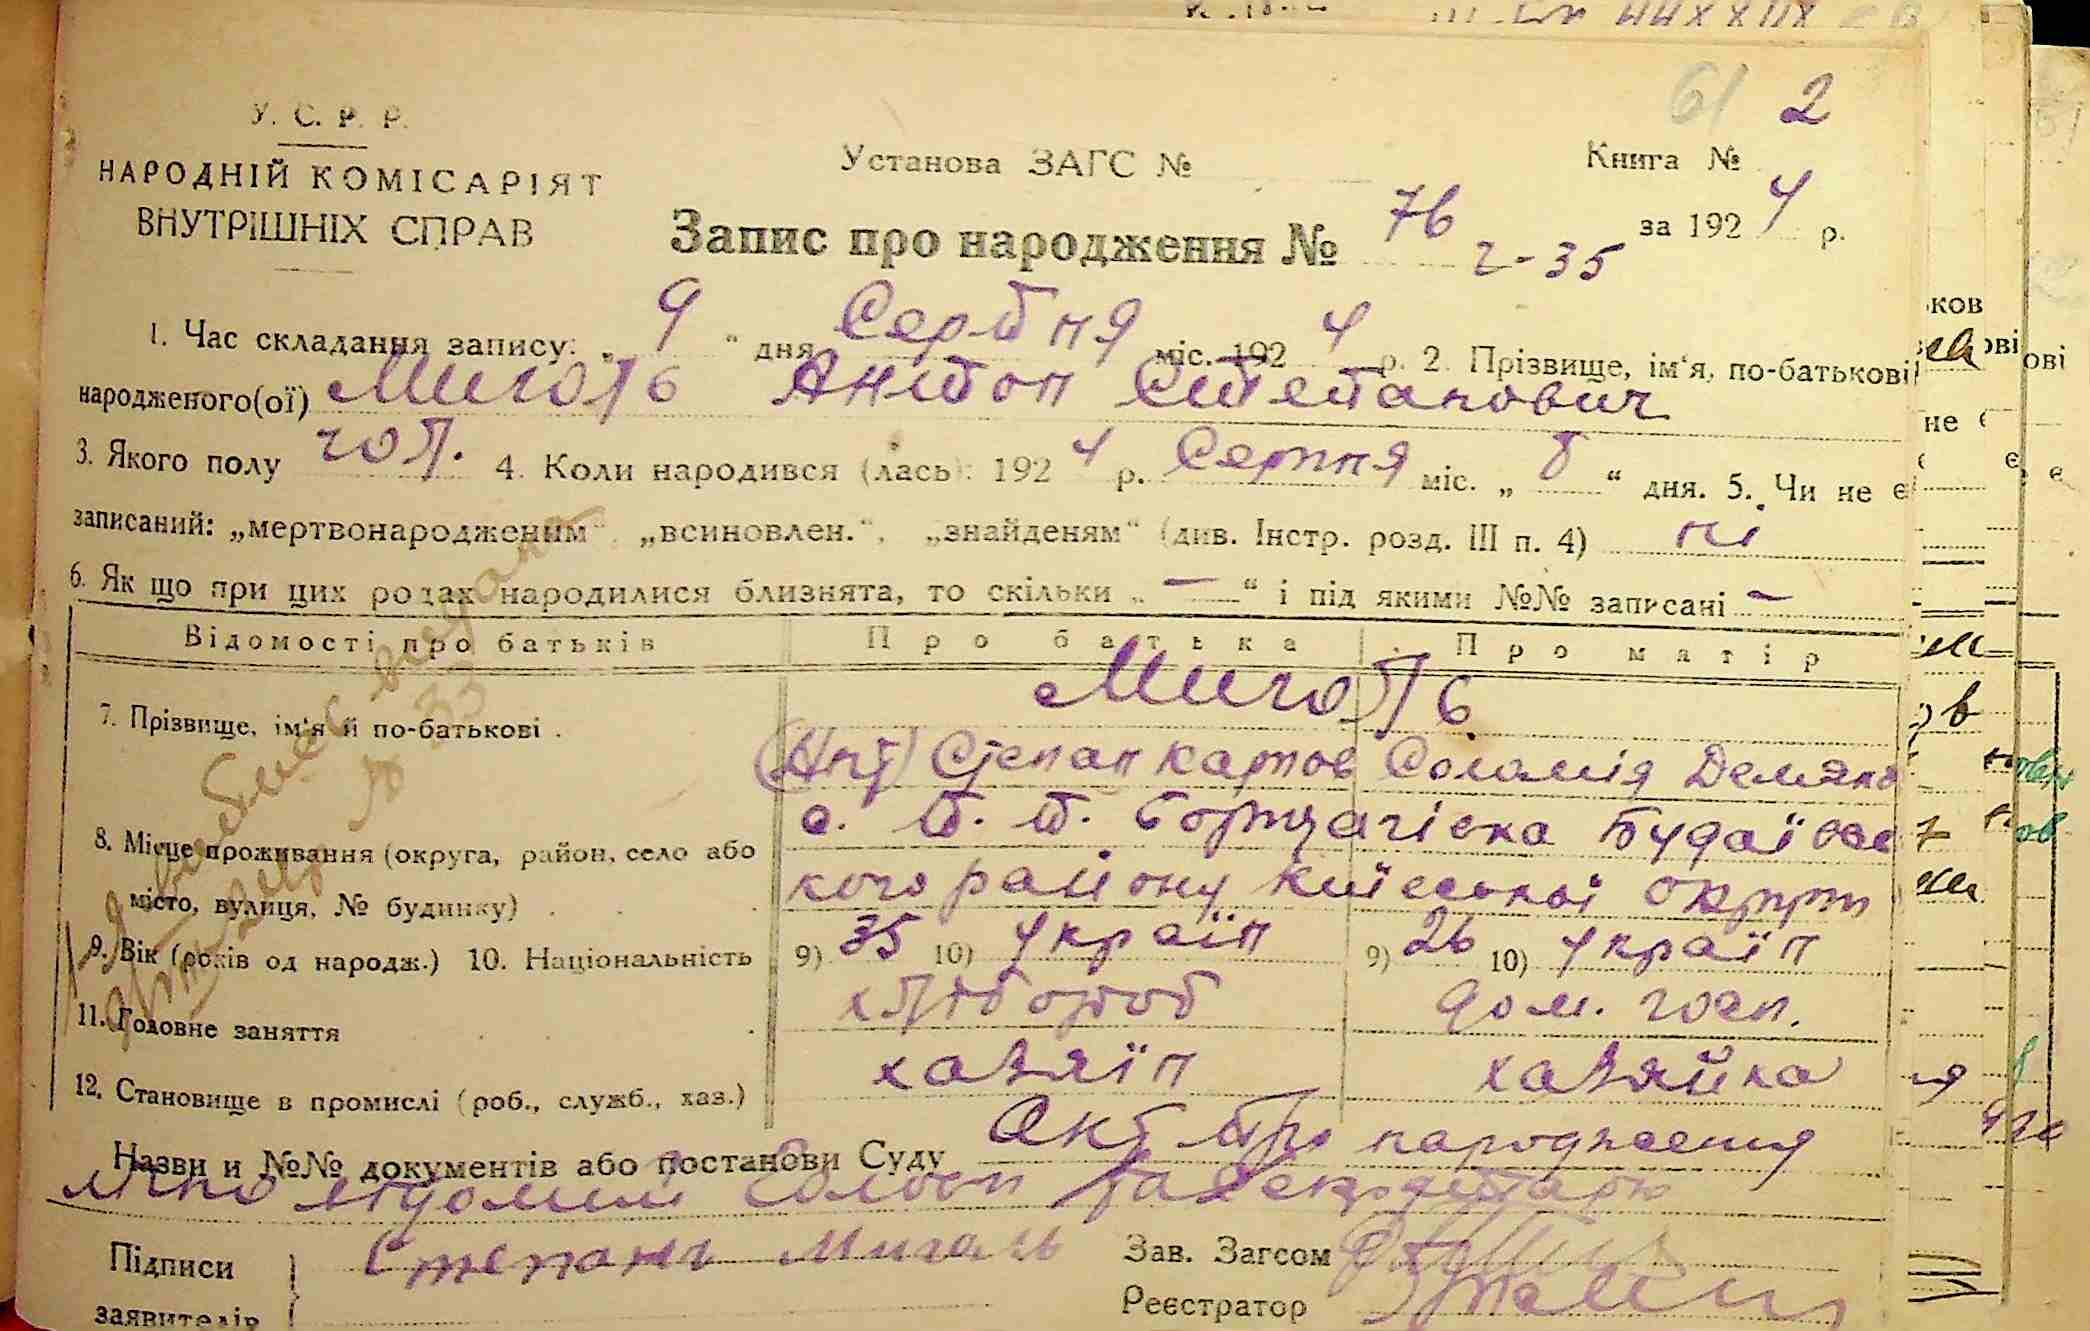 61 2
У. С. Р. Р.
НАРОДНІЙ КОМІСАРІЯТ
ВНУТРІШНІХ СПРАВ
Установа ЗАГС № Книга №
Запис про народження № 76 за 1924 р.
2-35
1. Час складання запису: „ 9 “ дня Серпня міс. 1924 р. 2. Прізвище, ім‘я, по-батькові
народженого(ої) Мигаль Антон Степанович
3. Якого полу чол. 4. Коли народився (лась): 1924 р. Серпня міс. „ 8 “ дня. 5. Чи не є
записаний: „мертвонародженим“, „всиновлен.“, „знайденям“ (див. Інстр. розд. III п. 4) ні
6. Як що при цих родах народилися близнята, то скільки „ — “ і під якими №№ записані —
Відомості про батьків Про батька Про матір
7. Прізвище, ім‘я й по-батькові . Мигаль
Степан Карпов Соломія Демянов
8. Місце проживання (округа, район, село або
місто, вулиця, № будинку) с. п. п. Борщагівка Будаївсь
кого району Київської округи
9. Вік (років од народж.) 10. Національність 9) 35 10) Україн 9) 26 10) Україн
11. Головне заняття хлібороб дом. госп.
12. Становище в промислі (роб., служб., хаз.) хазяїн хазяйка
Назви и №№ документів або постанови Суду Акт про народження
Підписи Степанъ Мигаль Зав. Загсом
заявителів Реєстратор